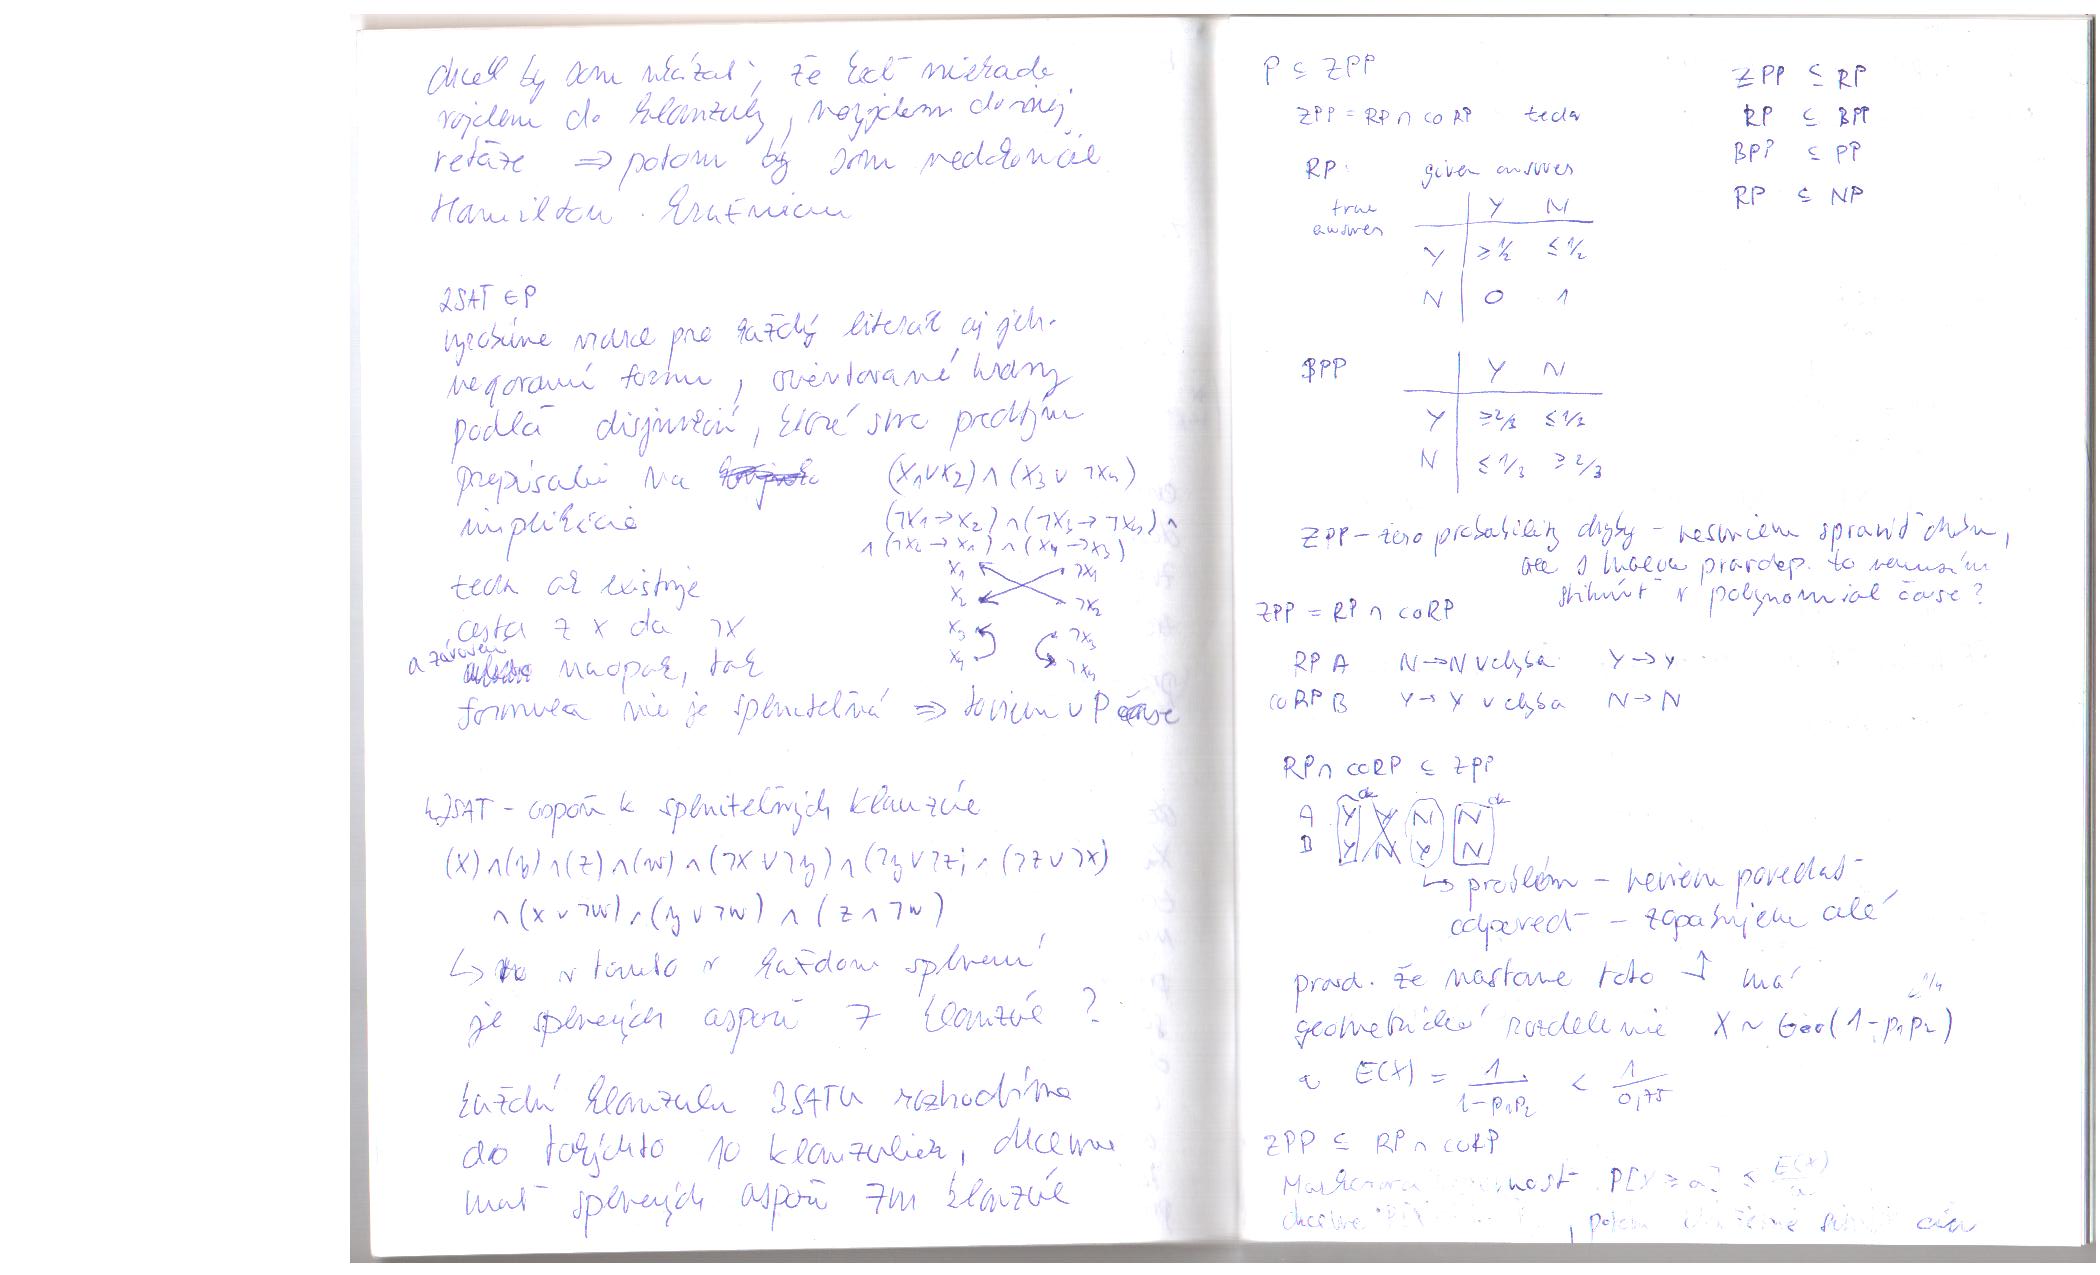 chcel by som ukázať, že keď niekade
vojdem do klauzuly, nevyjdem do inej
reťaze ⇒ potom by som nedokončil
Hamilton. kružnicu
2SAT ∈ P
vyrobíme vrchol pre každý literál aj ich
negovanú formu, orientované hrany
podľa disjunkcií, ktoré sme predtým
prepísali na
implikácie
(x₁∨x₂) ∧ (x₃ ∨ ¬x₄)
(¬x₁→x₂) ∧ (¬x₃→¬x₄) ∧
∧ (¬x₂→x₁) ∧ (x₄→x₃)
x₁ ¬x₁
x₂ ¬x₂
x₃ ¬x₃
x₄ ¬x₄
teda ak existuje
cesta z x do ¬x
a zároveň naopak, tak
formula nie je splniteľná ⇒ to viem v P čase
SAT - aspoň k splniteľných klauzúl
(x)∧(y)∧(z)∧(w)∧(¬x∨¬y)∧(¬y∨¬z)∧(¬z∨¬x)
∧(x∨¬w)∧(y∨¬w)∧(z∧¬w)
↳ v tomto v každom splnení
je splnených aspoň 7 klauzúl?
každú klauzulu 3SATu rozhodíme
do takýchto 10 klauzuliek, chceme
mať splnených aspoň 7m klauzúl
P ⊆ ZPP
ZPP = RP ∩ coRP teda
RP: given answer
true
answer
Y N
Y ≥1/2 ≤1/2
N 0 1
ZPP ⊆ RP
RP ⊆ BPP
BPP ⊆ PP
RP ⊆ NP
BPP Y N
Y ≥2/3 ≤1/3
N ≤1/3 ≥2/3
ZPP – zero probability chyby – nesmiem spraviť chybu,
ale s malou pravdep. to nemusím
stihnúť v polynomial čase?
ZPP = RP ∩ coRP
RP A N→N v chyba Y→Y
coRP B Y→Y v chyba N→N
RP ∩ coRP ⊆ ZPP
A Y Y N N
B Y N Y N
ok ok
↳ problém – neviem povedať
odpoveď – zopakujem celé
pravd. že nastane toto ↑ má
geometrické rozdelenie X ~ Geo(1-p₁p₂)
<1/4
a E(X) = 1/(1-p₁p₂) < 1/0,75
ZPP ⊆ RP ∩ coRP
Markovova P[X ≥ a] ≤ E(X)/a
chceme , potom